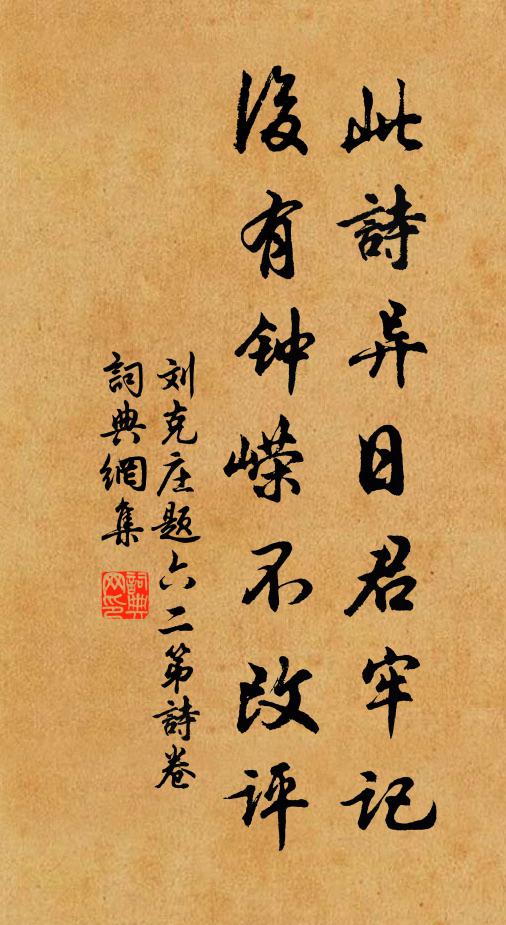 此詩异日君牢记
後有钟嵘不改评
刘克庄题六二第詩卷
詞典網集
詞典网印